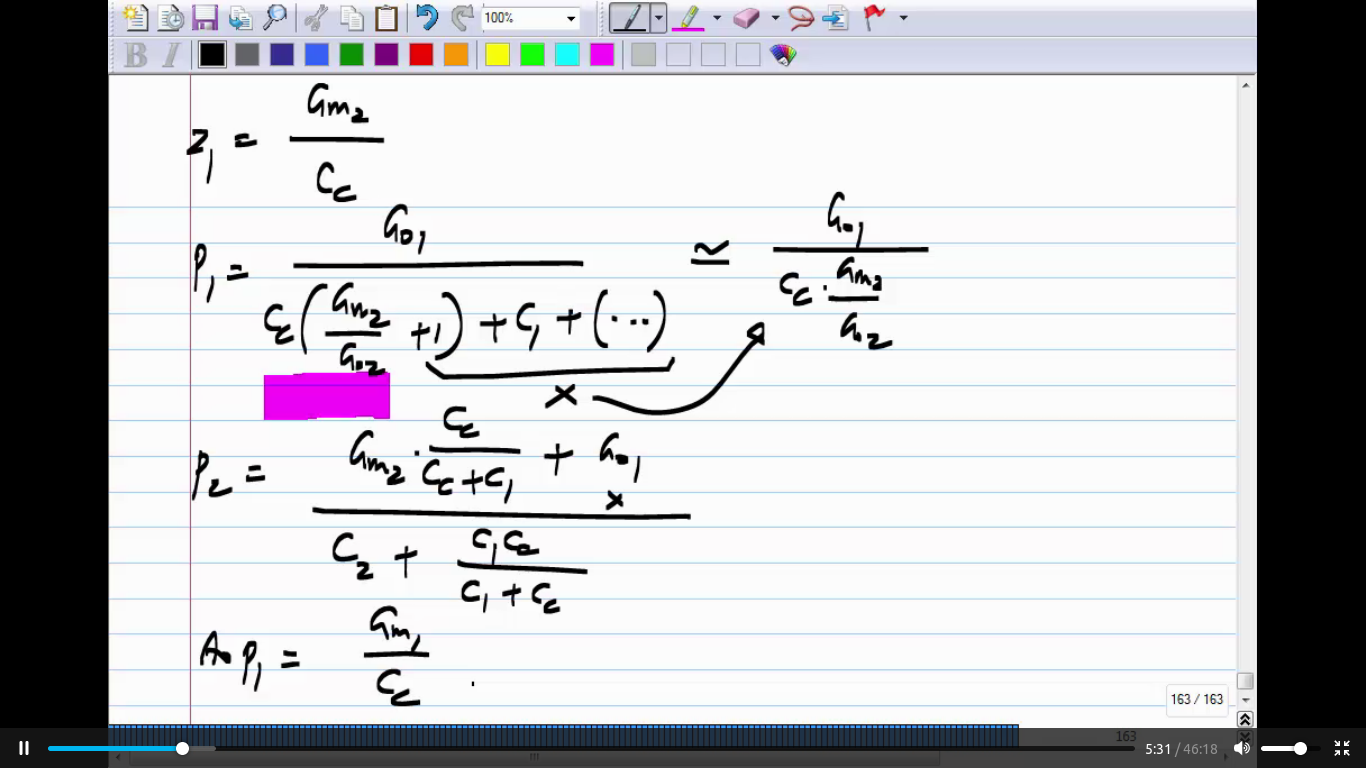 100%
B I
z₁ = Gm₂ / C_C
p₁ = Go₁ / (C_C (Gm₂/Go₂ + 1) + C₁ + (...)) ≃ Go₁ / (C_C · Gm₂/Go₂)
x
p₂ = (Gm₂ · C_C/(C_C + C₁) + Go₁) / (C₂ + C₁C_C/(C₁ + C_C))
x
A₀ p₁ = Gm₁ / C_C
163 / 163
163
5:31 / 46:18